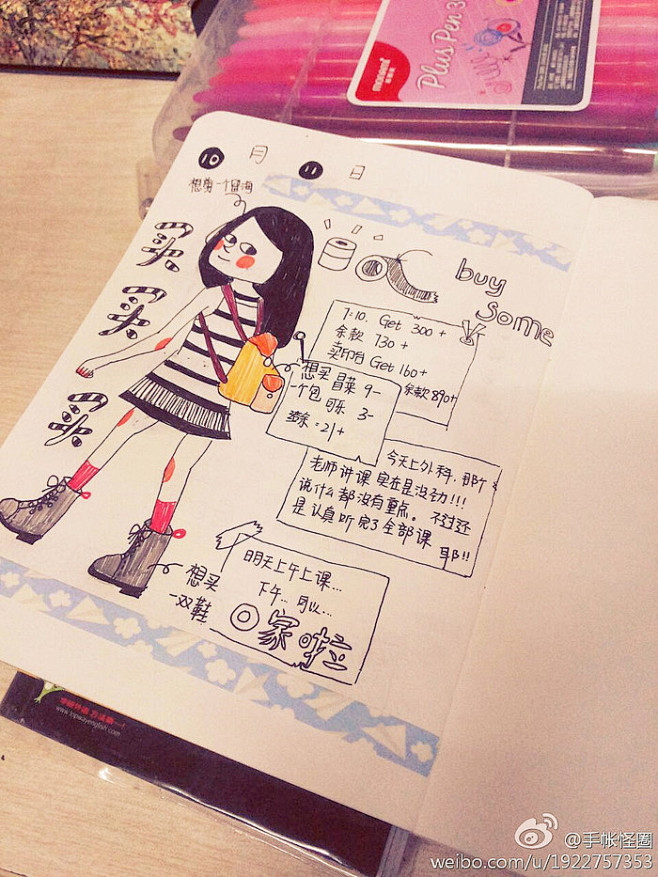 monami
Plus Pen 3
10月11日
想剪一个留海
买
买
买
buy
some
7:10. Get 300+
余款 730+
卖印台 Get 160+
余款890+
想买 冒菜 9-
一个包 可乐 3-
21+
今天上外科,那个
老师讲课实在是没劲!!!
说什么都没有重点。不过还
是认真听完了全部课 耶!!
明天上午上课...
下午..可以...
回家啦
想买
一双鞋
www.topwayenglish.com
@手帐怪圈
weibo.com/u/1922757353